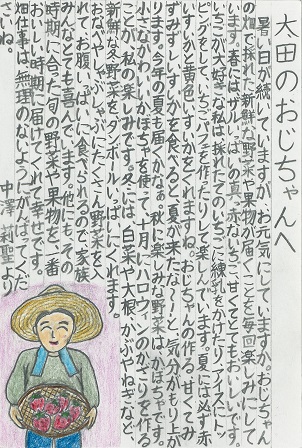 太田のおじちゃんへ
暑い日が続いていますが、お元気にしていますか。おじちゃん
の畑で採れた新鮮な野菜や果物が届くことを毎回楽しみにして
います。春にはザルいっぱいの真っ赤ないちご。甘くてとてもおいしいです。
いちごが大好きな私は採れたてのいちごに練乳をかけたり、アイスにトッ
ピングをして、いちごパフェを作ったりして楽しんでいます。夏には必ず
いすいかと黄色いすいかをくれますね。おじちゃんの作る、甘くてみ
ずみずしいすいかを食べると「夏が来たな〜!」と、気分がもり上が
ります。今年の夏も届くかなぁ。秋に楽しみな野菜は、かぼちゃです。
小さなかわいいかぼちゃを使って、十月にハロウィンのかざりを作る
ことが、私の楽しみです。冬には、白菜や大根、かぶやねぎなど、
新鮮な冬野菜をダンボールいっぱいにくれます。
おなべや、しゃぶしゃぶにたくさん野菜を入
れて、お腹いっぱいに食べられるので、家族
みんなとても喜んでいます。他にも、その
時期に合った旬の野菜や果物を、一番
おいしい時期に届けてくれて幸せです。
畑仕事は、無理のないようにがんばってくだ
さいね。
中澤 莉聖より